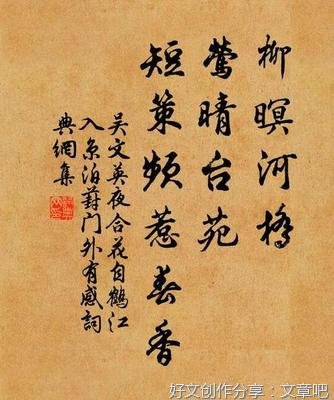 柳暝河橋
鶯晴台苑
短策頻惹春香
吴文英夜合花自鶴江
入京泊葑門外有感詞
典網集
好文创作分享：文章吧